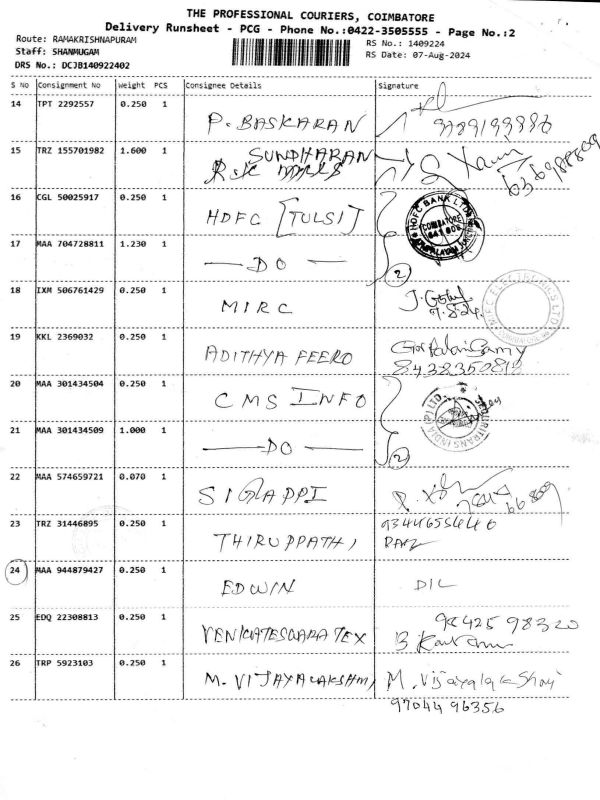 THE PROFESSIONAL COURIERS, COIMBATORE
Delivery Runsheet - PCG - Phone No.:0422-3505555 - Page No.:2
Route: RAMAKRISHNAPURAM
RS No.: 1409224
Staff: SHANMUGAM
RS Date: 07-Aug-2024
DRS No.: DCJB140922402
S No Consignment No Weight PCS Consignee Details Signature
14 TPT 2292557 0.250 1 P. BASKARAN
15 TRZ 155701982 1.600 1 SUNDHARAN
16 CGL 50025917 0.250 1 HDFC [TULSI]
HDFC BANK LTD
COIMBATORE
17 MAA 704728811 1.230 1 DO 2
18 IXM 506761429 0.250 1 MIRC
7.8.24
19 KKL 2369032 0.250 1 ADITHYA FEERO
20 MAA 301434504 0.250 1 CMS INFO
SECURITRANS INDIA (P) LTD.
21 MAA 301434509 1.000 1 DO 2
22 MAA 574659721 0.070 1 SIGAPPI
23 TRZ 31446895 0.250 1 THIRUPPATHI
24 MAA 944879427 0.250 1 EDWIN
25 EDQ 22308813 0.250 1 VENKATESWARA TEX 98425 98320
26 TRP 5923103 0.250 1 M. VIJAYALAKSHMI M. Vijayalakshmi
97044 96356